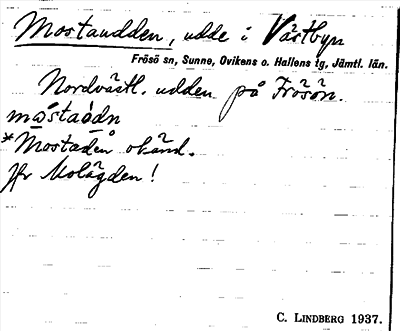 Mostaudden, udde i Västbyn
Frösö sn, Sunne, Ovikens o. Hallens tg, Jämtl. län.
Nordvästl. udden på Frösön.
*Mostaden okänd.
Jfr Molägden!
C. LINDBERG 1937.